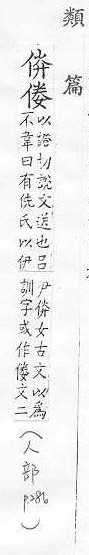 類篇
倴㑞
以證切說文送也呂
不韋曰有侁氏以伊
尹倴女古文以為
訓字或作㑞文二
(人部 p286)